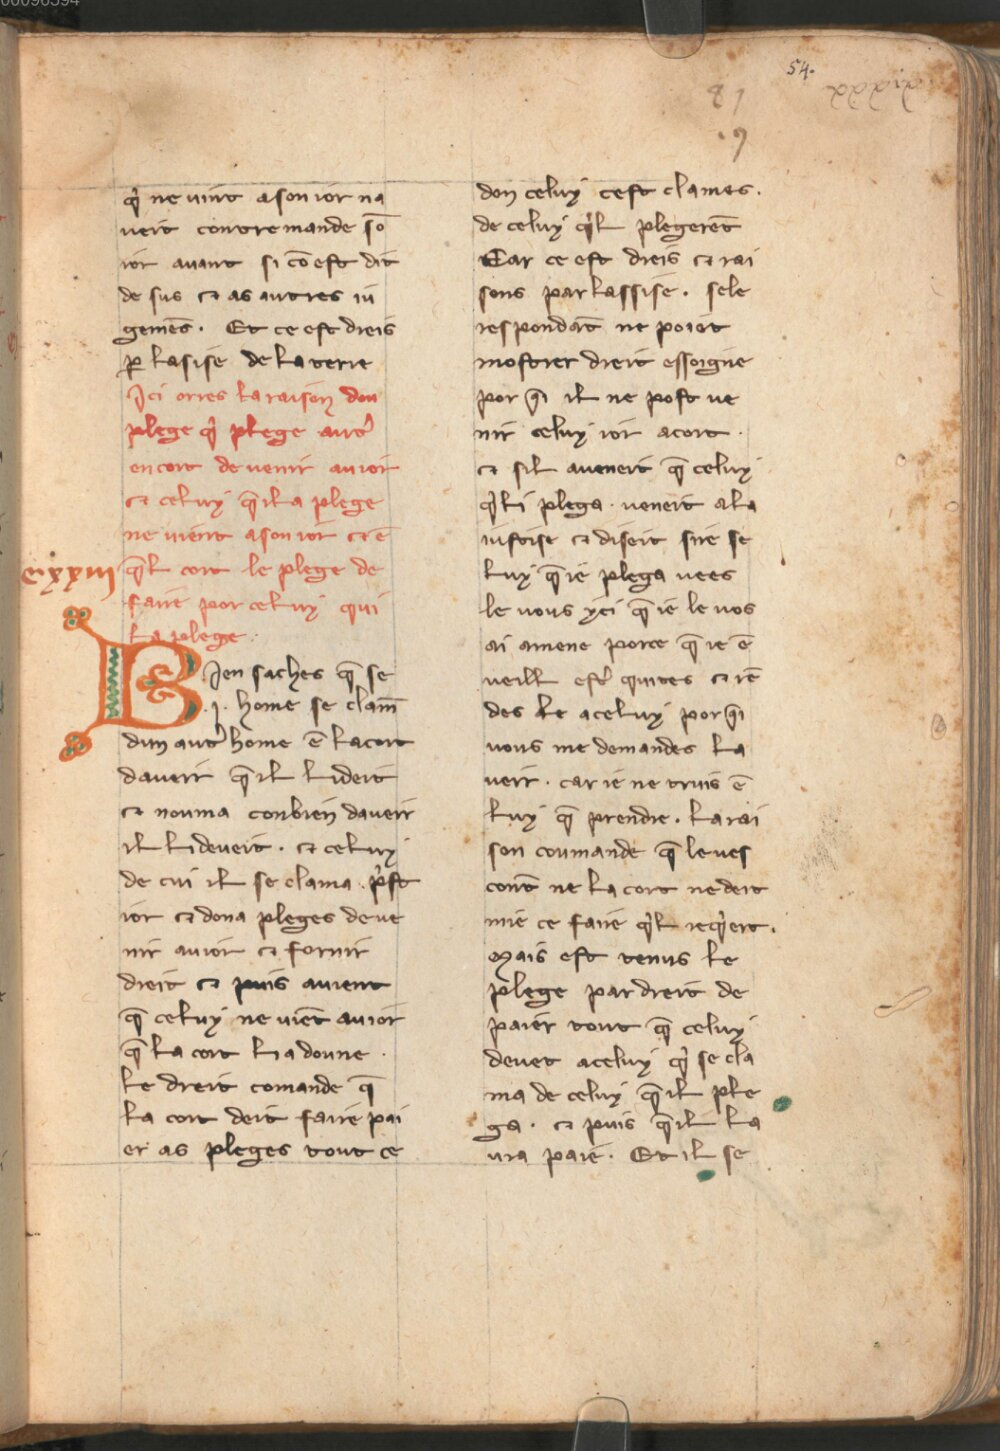 54.
81
.9
q̓ ne uint a son ior na
ueit contremande sō
ior auant si cō est dit
de sus et as autres iu
gemēs. Et ce est dreis
ꝑ lasise de la terre
Ici orres la raison dou
plege q̓ plege autᵉ
en cort de venir au ior
et celuy q̄ il a plege
ne uient a son ior et ē
q̄l cort le plege de
faire por celuy qui
la plege.
cxxxiii
Bien saches q̄ se
.j. home se clam̄
dun autᵉ home ē la cort
daueir q̄ il li deit
et nouma conbien daueir
il li deueit. et celuy
de cui il se clama p̓st
ior et dona pleges de ue
nir au ior et fornir
dreit et puis auient
q̄ celuy ne uiēt au ior
q̄ la cort li a donne.
le dreit comande q̄
la cort deit faire pai
er as pleges tout ce
don celuy cest clames.
de celuy q̓l plegerēt
Car ce est dreis et rai
sons par lassise. sele
respondāt ne poiet
mostrer dreit essoigne
por q̄i il ne post ue
nir celuy ior a cort.
et sil aueneit q̄ celuy
q̓ li plega. ueneit a la
iustise et diseit sire se
luy q̄ ie plega uees
le uous yci q̄ ie le uos
ai amene porce q̄ ie ē
ueill estᵉ quites et rē
des le a celuy por q̄i
uous me demandes la
ueir. car ie ne truis ē
luy q̄ prendre. la rai
son coumande q̄ le ues
cont̄ ne la cort ne deit
mie ce faire q̓l req̓ert.
Mais est tenus le
plege par dreit de
paier tout q̄ celuy
deuet a celuy q̓ se cla
ma de celuy q̄ il ple
ga. et puis q̄ il la
ura paie. Et il se